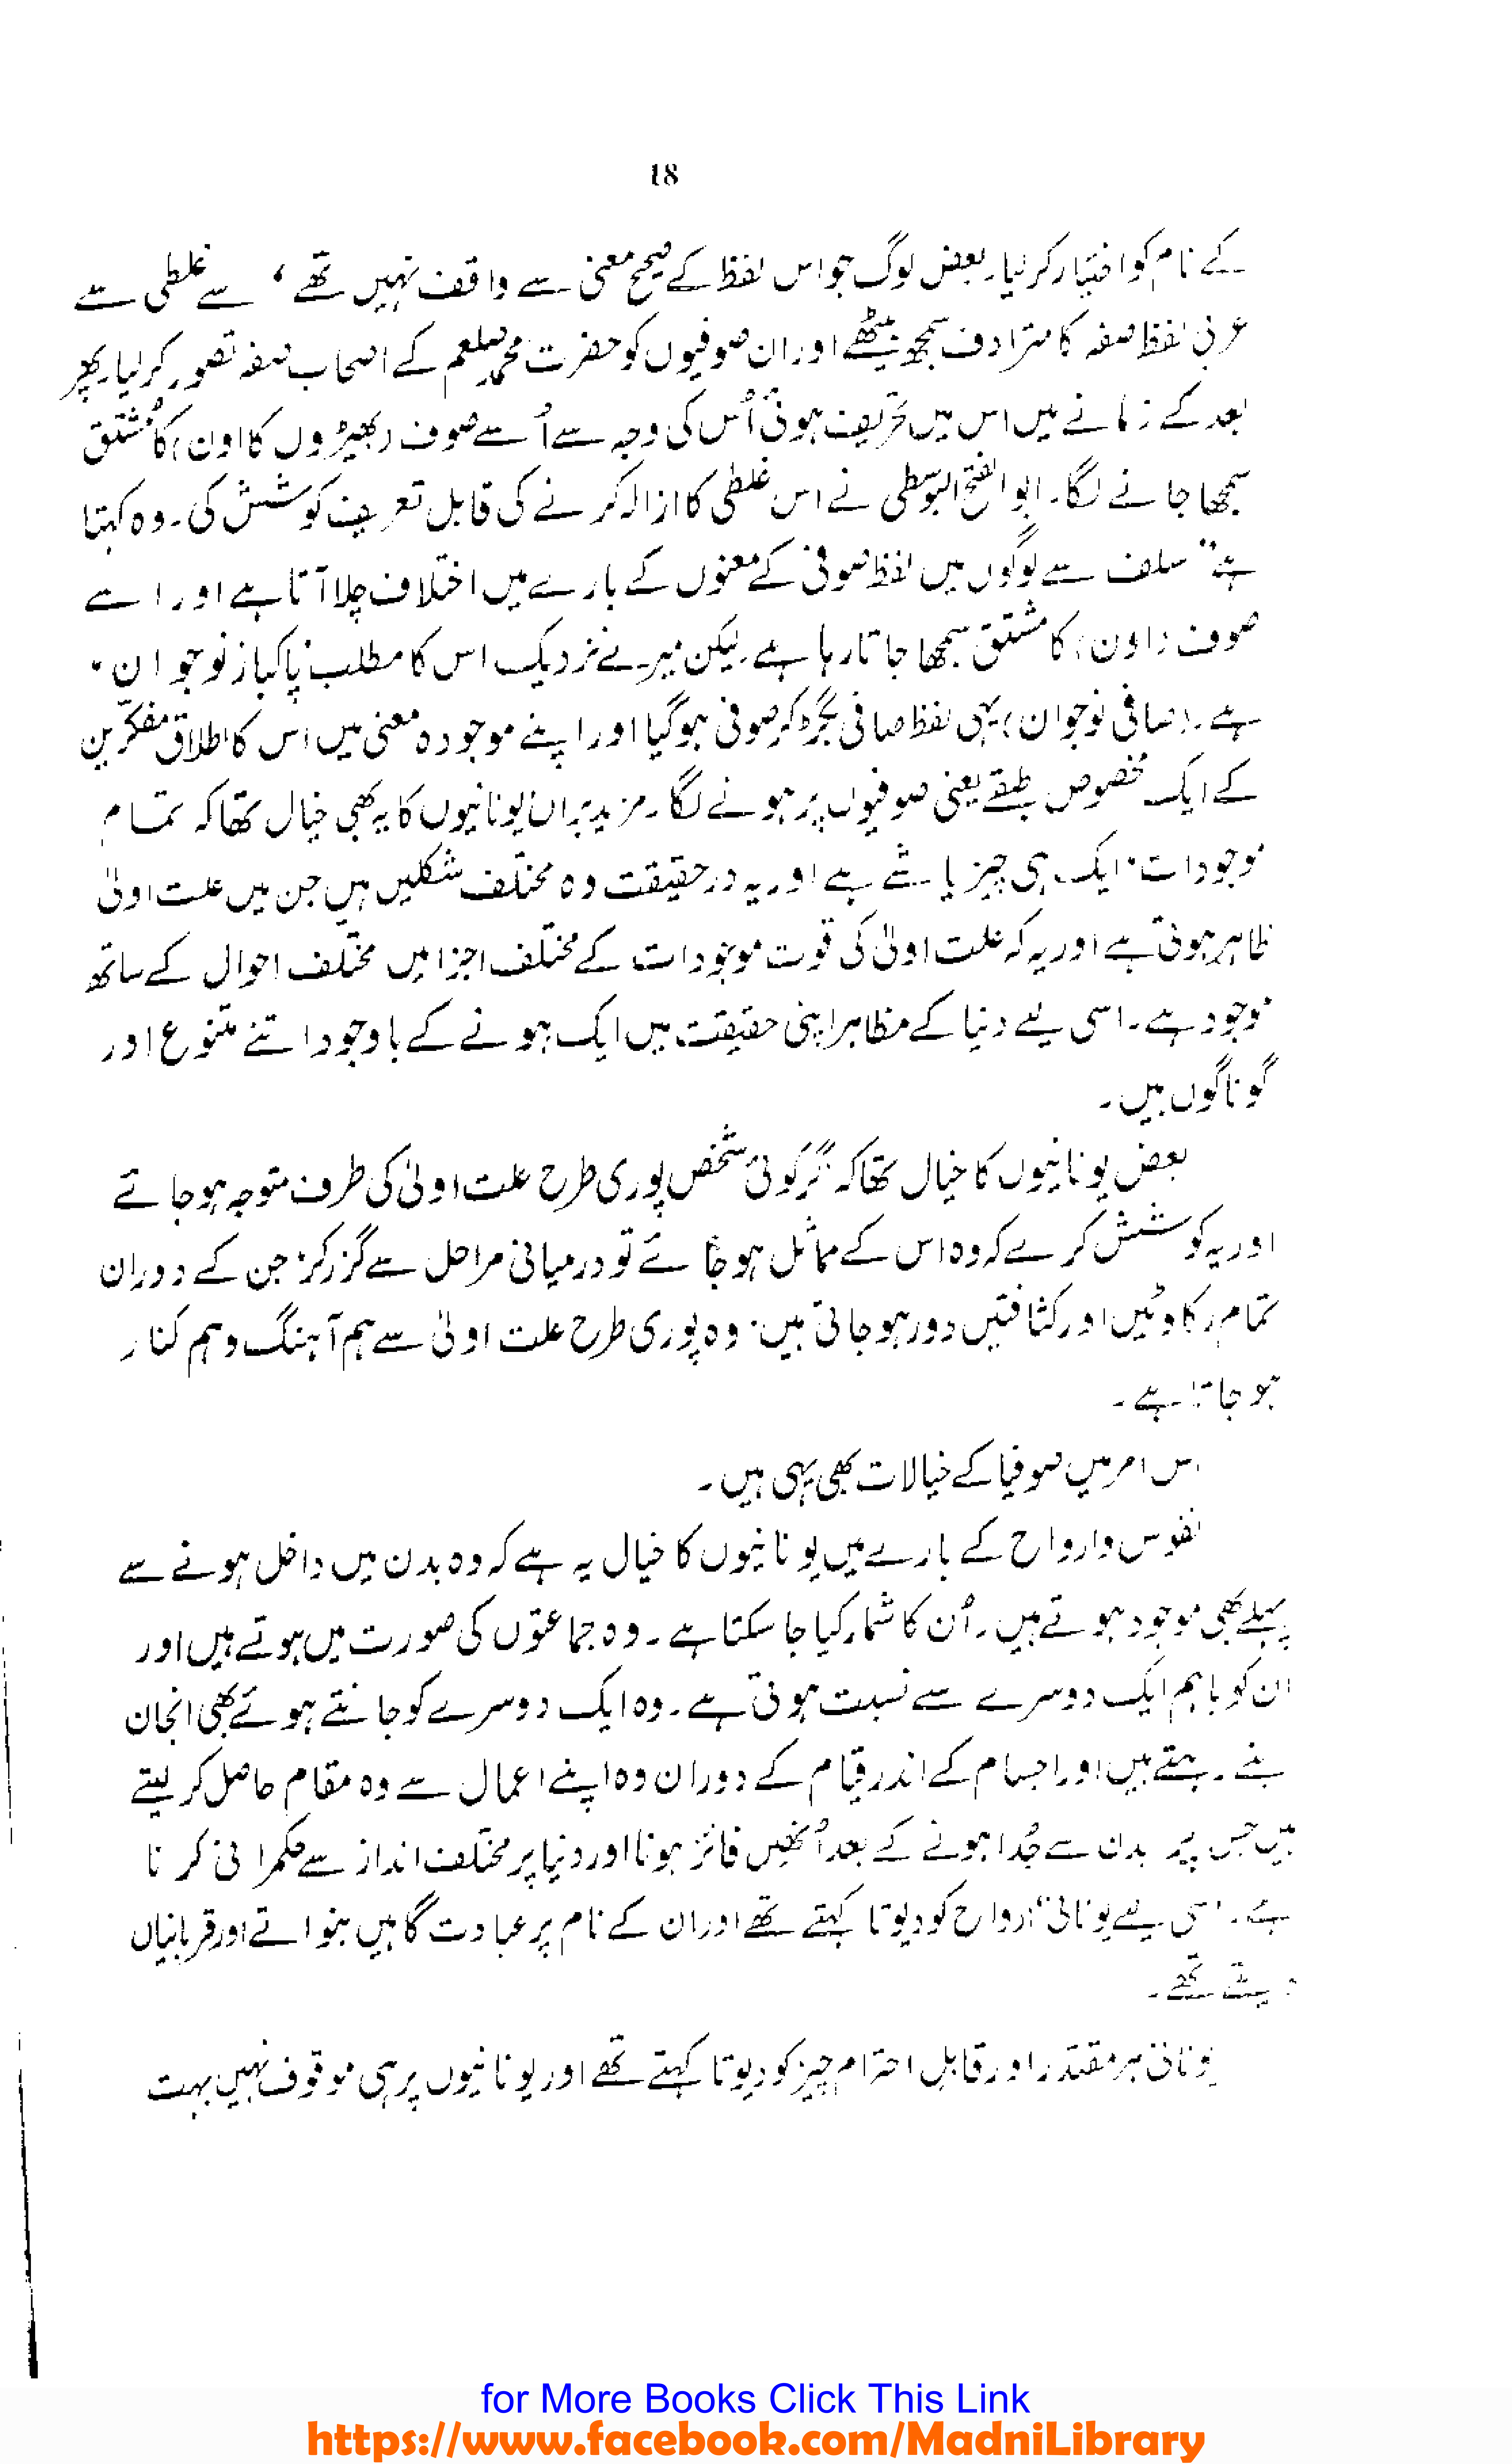 18
کے نام کو اختیار کر لیا۔ بعض لوگ جو اس لفظ کے صحیح معنی سے واقف نہیں تھے، سے غلطی سے
عربی لفظ صفہ کا مترادف سمجھ بیٹھے اور ان صوفیوں کو حضرت محمد صلعم کے اصحاب صفہ تصور کر لیا۔ پھر
بعد کے زمانے میں اس میں تحریف ہوئی اُس کی وجہ سے اُسے صوف (بھیڑوں کا اون) کا مُشتق
سمجھا جانے لگا۔ ابوالفتح البوسطی نے اس غلطی کا ازالہ کرنے کی قابل تعریف کوشش کی۔ وہ کہتا
ہے " سلف سے لوگوں میں لفظ صوفی کے معنوں کے بارے میں اختلاف چلا آتا ہے اور اسے
صوف (اون) کا مشتق سمجھا جاتا رہا ہے۔ لیکن میرے نزدیک اس کا مطلب پاکباز نوجوان"
ہے۔ (صافی نوجوان) یہی لفظ صافی بگڑ کر صوفی ہو گیا اور اپنے موجودہ معنی میں اس کا اطلاق مفکّرین
کے ایک مخصوص طبقے یعنی صوفیوں پر ہونے لگا۔ مزید براں یونانیوں کا یہ بھی خیال تھا کہ تمام
موجودات ایک ہی چیز یا شے ہے اور یہ در حقیقت وہ مختلف شکلیں ہیں جن میں علت اولیٰ
ظاہر ہوتی ہے اور یہ کہ علت اولیٰ کی قوت موجودات کے مختلف اجزا میں مختلف احوال کے ساتھ
موجود ہے۔ اسی لیے دنیا کے مظاہر اپنی حقیقت میں ایک ہونے کے باوجود اتنے متنوع اور
گوناگوں ہیں۔
بعض یونانیوں کا خیال تھا کہ گر کوئی شخص پوری طرح علت اولیٰ کی طرف متوجہ ہو جائے
اور یہ کوشش کرے کہ وہ اس کے مماثل ہو جائے تو درمیانی مراحل سے گزر کر، جن کے دوران
تمام رکاوٹیں اور کثافتیں دور ہو جاتی ہیں، وہ پوری طرح علت اولیٰ سے ہم آہنگ و ہم کنار
ہو جاتا ہے۔
اس امر میں صوفیا کے خیالات بھی یہی ہیں۔
نفوس و ارواح کے بارے میں یونانیوں کا خیال یہ ہے کہ وہ بدن میں داخل ہونے سے
پہلے بھی موجود ہوتے ہیں۔ اُن کا شمار کیا جا سکتا ہے۔ وہ جماعتوں کی صورت میں ہوتے ہیں اور
ان کو باہم ایک دوسرے سے نسبت ہوتی ہے۔ وہ ایک دوسرے کو جانتے ہوئے بھی انجان
بنے رہتے ہیں اور اجسام کے اندر قیام کے دوران وہ اپنے اعمال سے وہ مقام حاصل کر لیتے
ہیں جس پر بدن سے جُدا ہونے کے بعد اُنھیں فائز ہونا اور دنیا پر مختلف انداز سے حکمرانی کرنا
ہے۔ اسی لیے یونانی ارواح کو دیوتا کہتے تھے اور ان کے نام پر عبادت گاہیں بنواتے اور قربانیاں
دیتے تھے۔
یونانی ہر مقتدر اور قابلِ احترام چیز کو دیوتا کہتے تھے اور یونانیوں پر ہی موقوف نہیں بہت
for More Books Click This Link
https://www.facebook.com/MadniLibrary